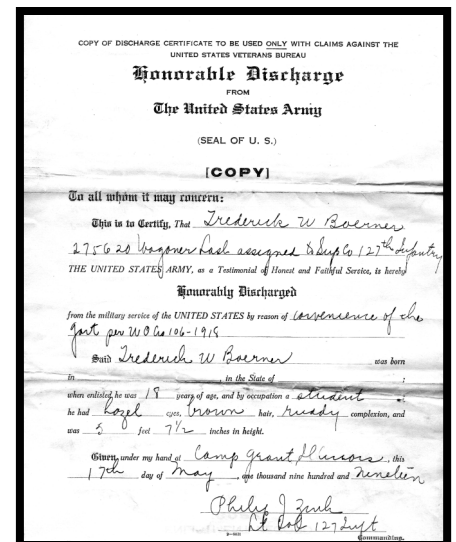 COPY OF DISCHARGE CERTIFICATE TO BE USED ONLY WITH CLAIMS AGAINST THE
UNITED STATES VETERANS BUREAU
Honorable Discharge
FROM
The United States Army
(SEAL OF U. S.)
[COPY]
To all whom it may concern:
This is to Certify, That Frederick W Boerner
275620 Wagoner Last assigned to Sup Co 127th Infantry
THE UNITED STATES ARMY, as a Testimonial of Honest and Faithful Service, is hereby
Honorably Discharged
from the military service of the UNITED STATES by reason of convenience of the
govt per W D Cir 106-1918
Said Frederick W Boerner was born
in , in the State of ;
when enlisted he was 18 years of age, and by occupation a student ;
he had hazel eyes, brown hair, ruddy complexion, and
was 5 feet 7 1/2 inches in height.
Given under my hand at Camp Grant, Illinois, this
17th day of May, one thousand nine hundred and nineteen
Philip J Zink
Lt Col 127 Inft
Commanding.